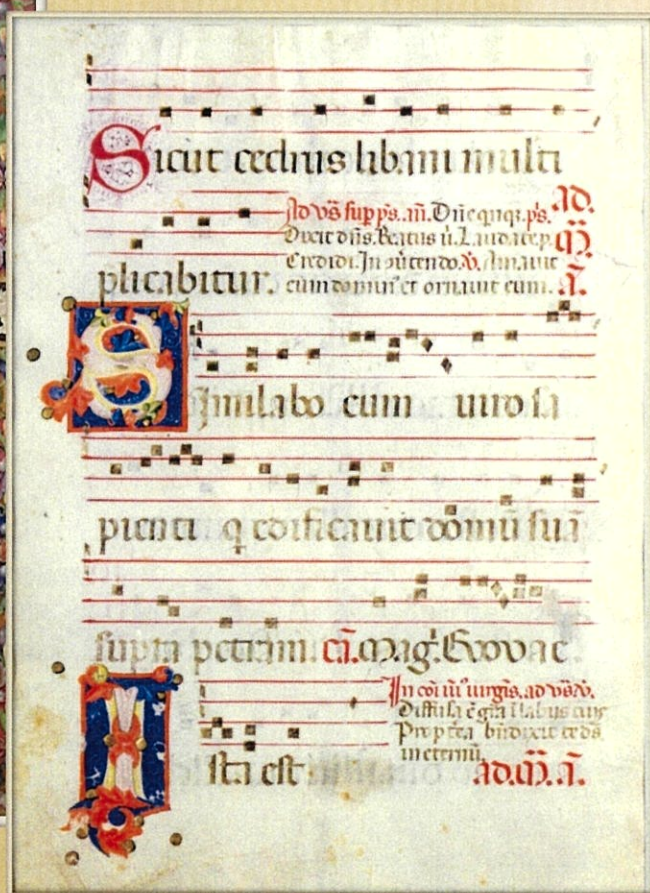 Sicut cedrus libani multi
plicabitur.
Ad vs̄ sup ps. añ. Dñe quiqz. ps. ad.
Dixit dñs. Beatus ū. Laudate p. M̄
Credidi. In ꝯutendo. v̄. Amauit ā.
eum dominus et ornauit eum.
Similabo eum uiro sa
pienti q edificauit domū suā
supra petram. cā. Mag. Evovae.
In coī uiꝰ uirgīs. ad vs̄ v̄.
Diffusa ē grā ī labiis tuis
Propterea bñdixit te ds
in eternū. ad. M̄. ā.
Ista est